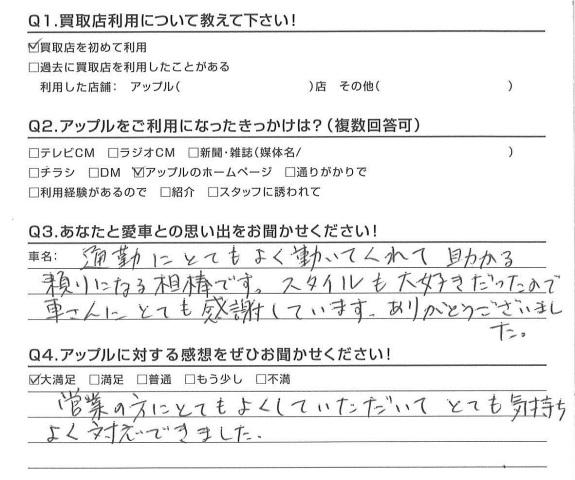 Q1.買取店利用について教えて下さい!
☑買取店を初めて利用
□過去に買取店を利用したことがある
利用した店舗: アップル( )店 その他( )
Q2.アップルをご利用になったきっかけは?(複数回答可)
□テレビCM □ラジオCM □新聞・雑誌(媒体名/ )
□チラシ □DM ☑アップルのホームページ □通りがかりで
□利用経験があるので □紹介 □スタッフに誘われて
Q3.あなたと愛車との思い出をお聞かせください!
車名: 通勤にとてもよく働いてくれて 助かる
頼りになる相棒です。スタイルも大好きだったので
車さんにとても感謝しています。ありがとうございまし
た。
Q4.アップルに対する感想をぜひお聞かせください!
☑大満足 □満足 □普通 □もう少し □不満
営業の方にとてもよくしていただいて とても気持ち
よく対応できました。